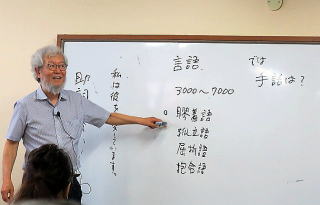 言語
では
手話は?
3000~7000
膠着語
孤立語
屈折語
抱合語
私は彼を
助詞